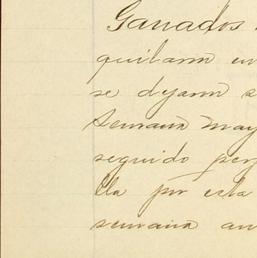 Ganados
quilann en
se dyann
Semana may
seguido per
lla por esta
semana an